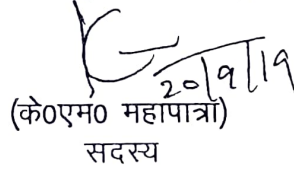 20/9/19
(के0एम0 महापात्रा)
सदस्य